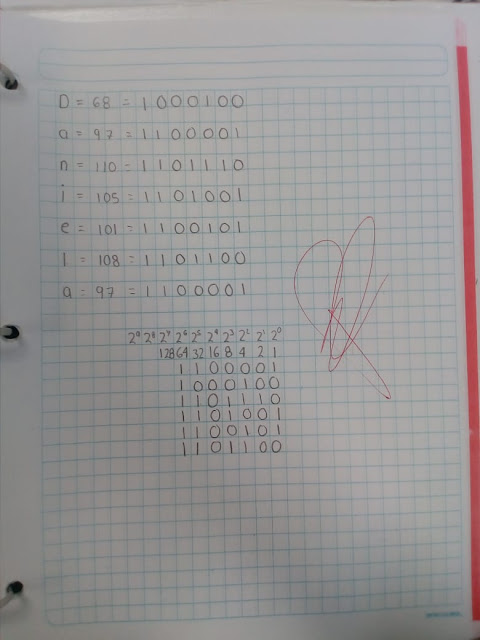 D = 68 = 1000100
a = 97 = 1100001
n = 110 = 1101110
i = 105 = 1101001
e = 101 = 1100101
l = 108 = 1101100
a = 97 = 1100001
2⁹ 2⁸ 2⁷ 2⁶ 2⁵ 2⁴ 2³ 2² 2¹ 2⁰
128 64 32 16 8 4 2 1
1 1 0 0 0 0 1
1 0 0 0 1 0 0
1 1 0 1 1 1 0
1 1 0 1 0 0 1
1 1 0 0 1 0 1
1 1 0 1 1 0 0